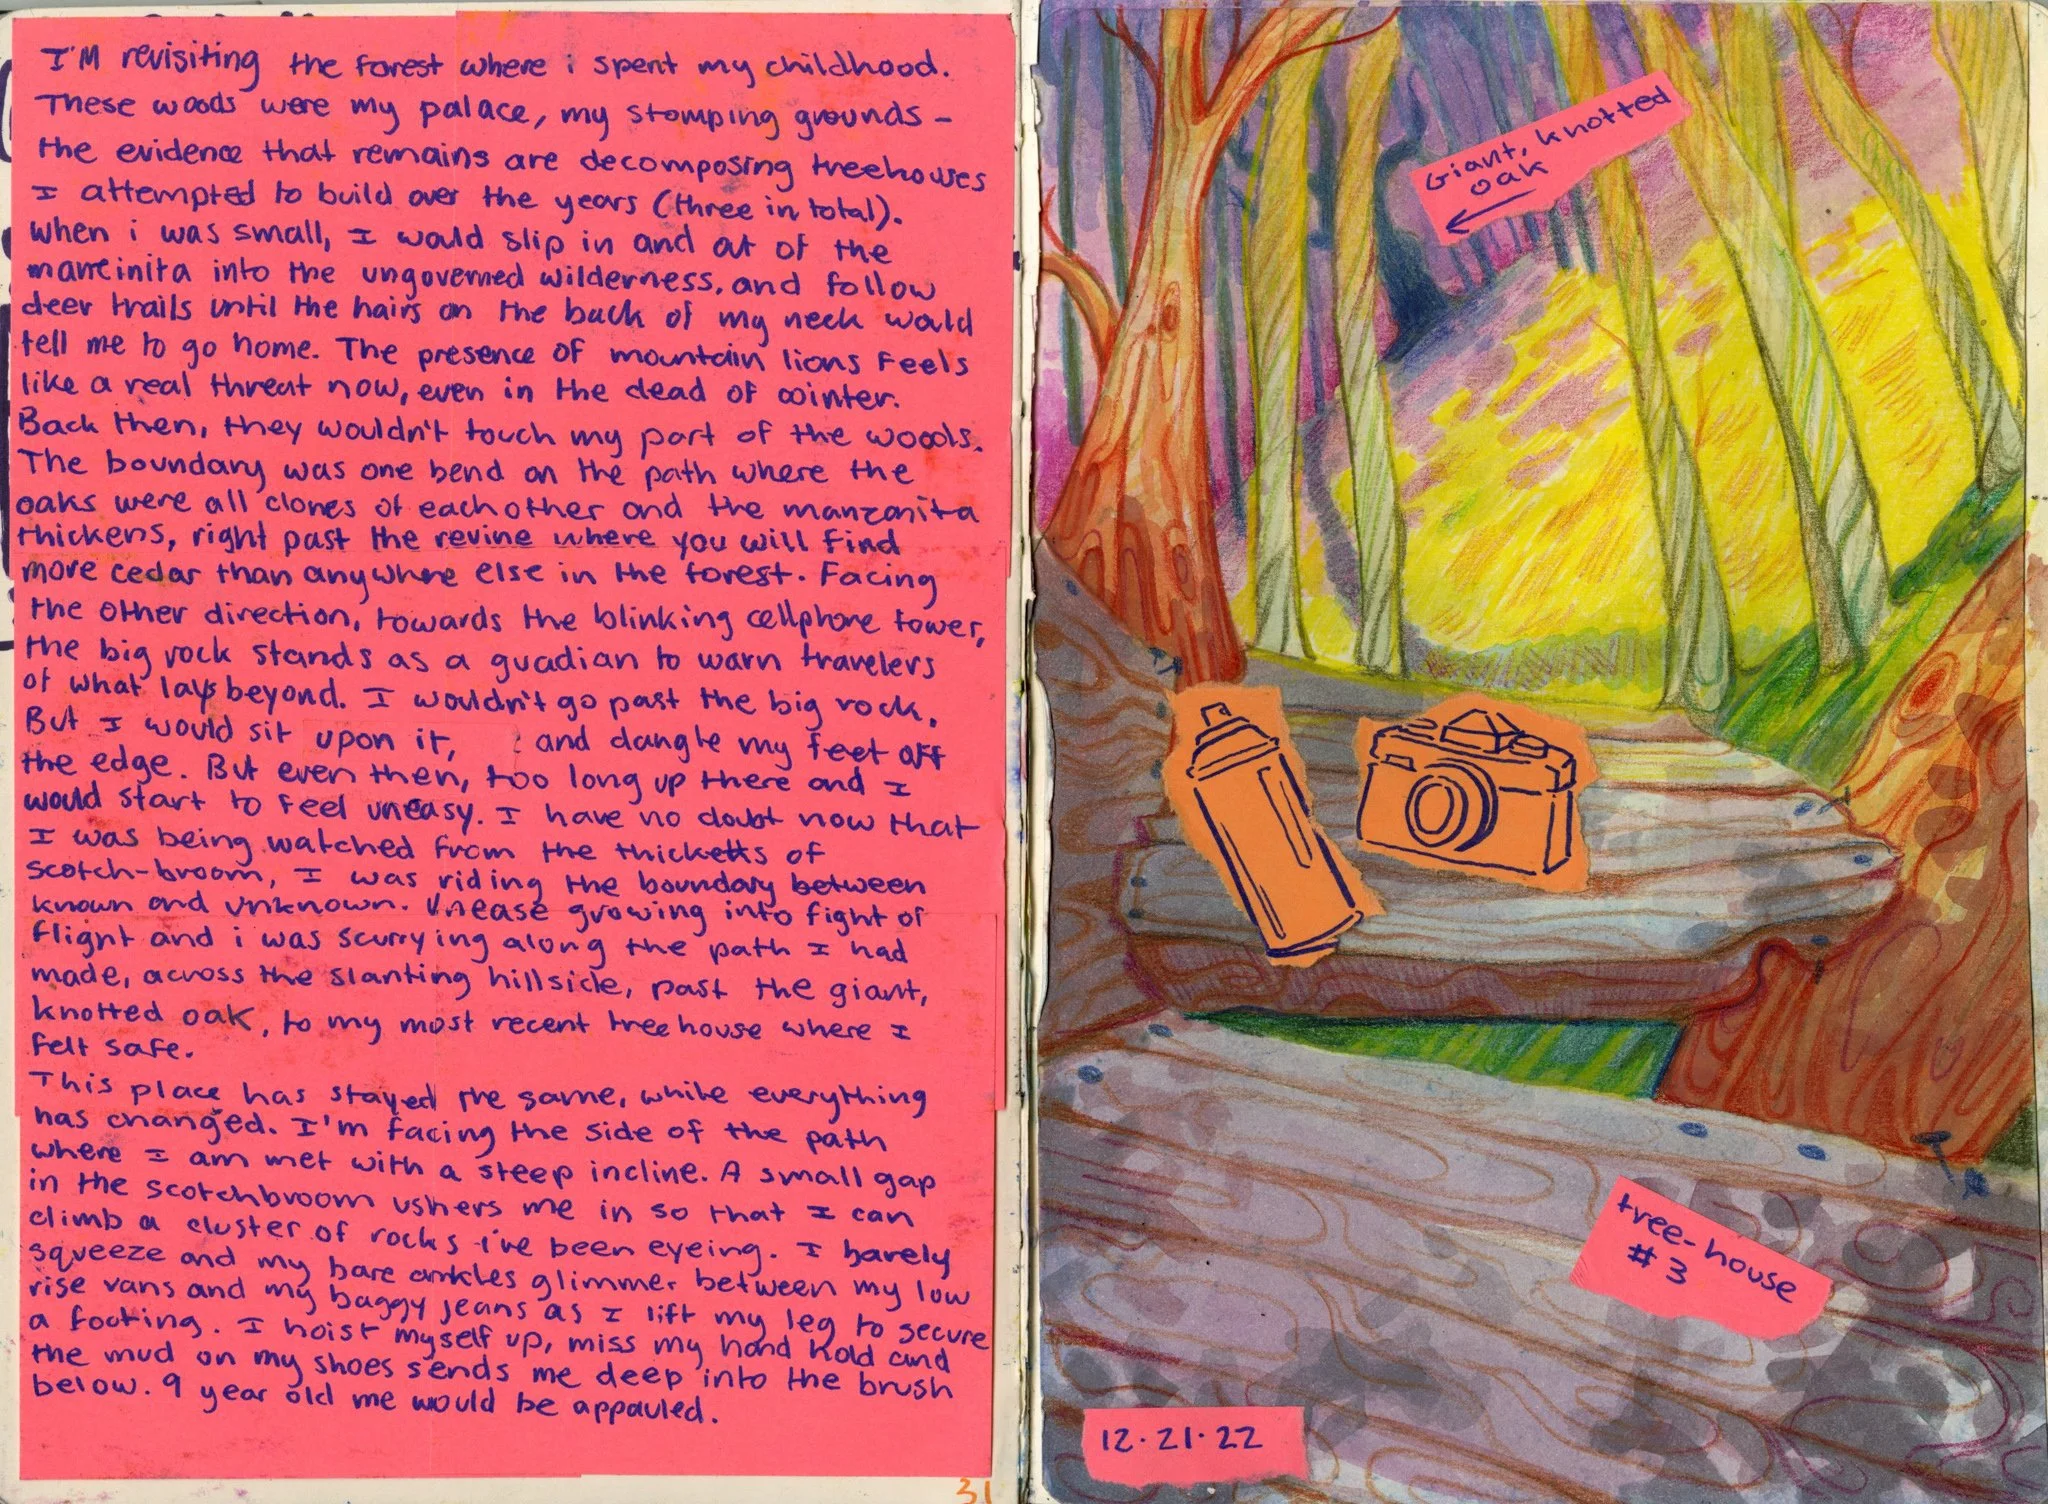 I'M revisiting the forest where i spent my childhood.
These woods were my palace, my stomping grounds -
the evidence that remains are decomposing treehouses
I attempted to build over the years (three in total).
when i was small, I would slip in and out of the
manreinita into the ungoverned wilderness, and follow
deer trails until the hairs on the back of my neck would
tell me to go home. The presence of mountain lions feels
like a real threat now, even in the dead of winter.
Back then, they wouldn't touch my part of the woods.
The boundary was one bend on the path where the
oaks were all clones of each other and the manzanita
thickens, right past the revine where you will find
more cedar than anywhere else in the forest. Facing
the other direction, towards the blinking cellphone tower,
the big rock stands as a guadian to warn travelers
of what lays beyond. I wouldn't go past the big rock.
But I would sit upon it, and dangle my feet off
the edge. But even then, too long up there and I
would start to feel uneasy. I have no doubt now that
I was being watched from the thicketts of
scotch-broom, I was riding the boundary between
known and unknown. Unease growing into fight or
flight and i was scurrying along the path I had
made, across the slanting hillside, past the giant,
knotted oak, to my most recent treehouse where I
felt safe.
This place has stayed the same, while everything
has changed. I'm facing the side of the path
where I am met with a steep incline. A small gap
in the scotchbroom ushers me in so that I can
climb a cluster of rocks i've been eyeing. I barely
squeeze and my bare ankles glimmer between my low
rise vans and my baggy jeans as I lift my leg to secure
a footing. I hoist myself up, miss my hand hold and
the mud on my shoes sends me deep into the brush
below. 9 year old me would be appauled.
31
Giant, knotted
oak
tree-house
#3
12.21.22